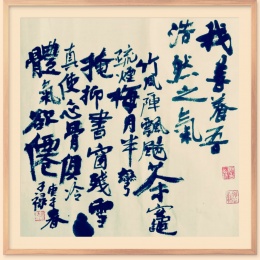 我善養吾
浩然之氣
竹風陣飄颺茶竈
疏煙梅月半彎
掩抑書窗殘雪
真使心骨俱冷
體氣欲僊
庚子春